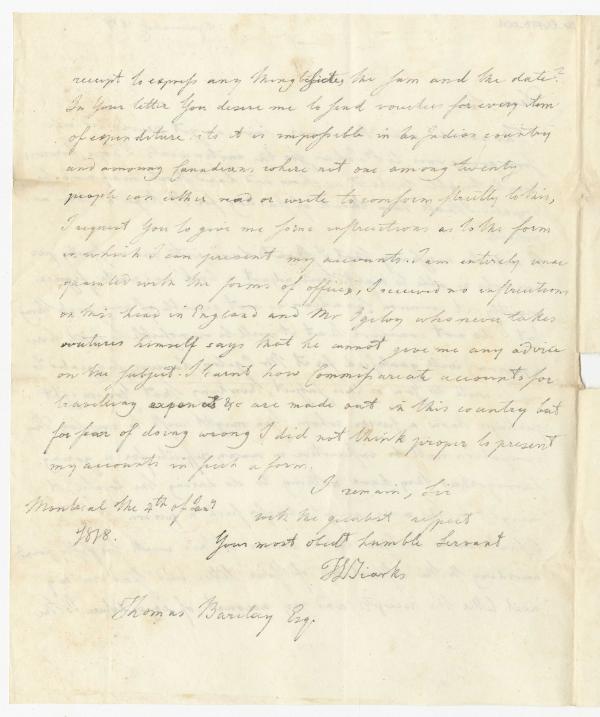 receipt to express any thing besides, the sum and the date?
In Your letter You desire me to send vouches for every item
of expenditure. As it is impossible in an Indian country
and among Canadians, where not one among twenty
people can either read or write to conform strictly to this,
I request You to give me some instructions as to the form
in which I can present my accounts. I am entirely unac
quainted with the forms of offices, I received no instructions
on this head in England and Mr Ogilvy who never takes
himself says that he cannot give me any advice
on the subject. I learnt how Commissariate accounts for
travelling expences &c are made out in this country but
for fear of doing wrong I did not think proper to present
my accounts in such a form.
I remain, Sir
Montreal the 4th of Jany
with the greatest respect
1818.
Your most obedt humble Servant
Tiarks
Thomas Barclay Esq.